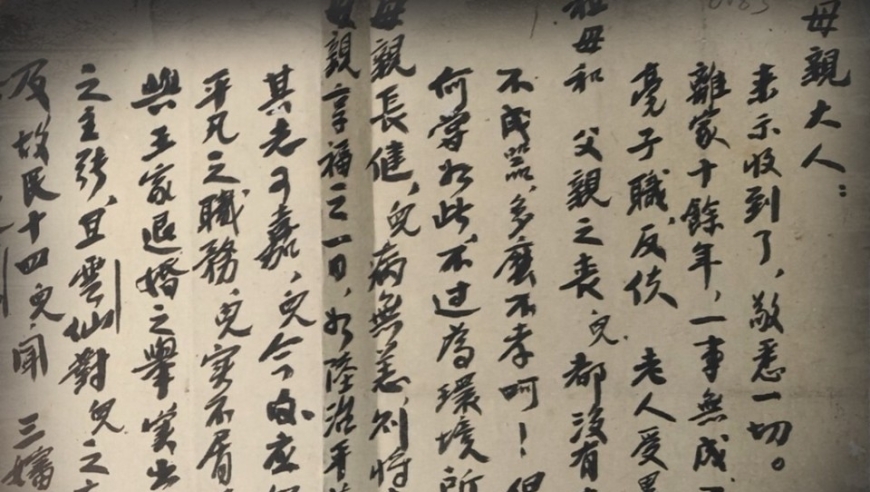 母親大人：
来示收到了，敬悉一切。
離家十餘年，一事無成，
子職，反使 老人受累
祖母和 父親之喪，兒都沒有
不成器，多麼不孝呵！但
何嘗如此，不过為環境所
母親長健，兒病無恙，則將
母親享福之一日，如陸治平
其志可嘉，兒今由應
平凡之職務，兒實不屑
與王家退婚之舉，実出
之主張，且雲仙對兒之
及故民十四兒聞 三嬸